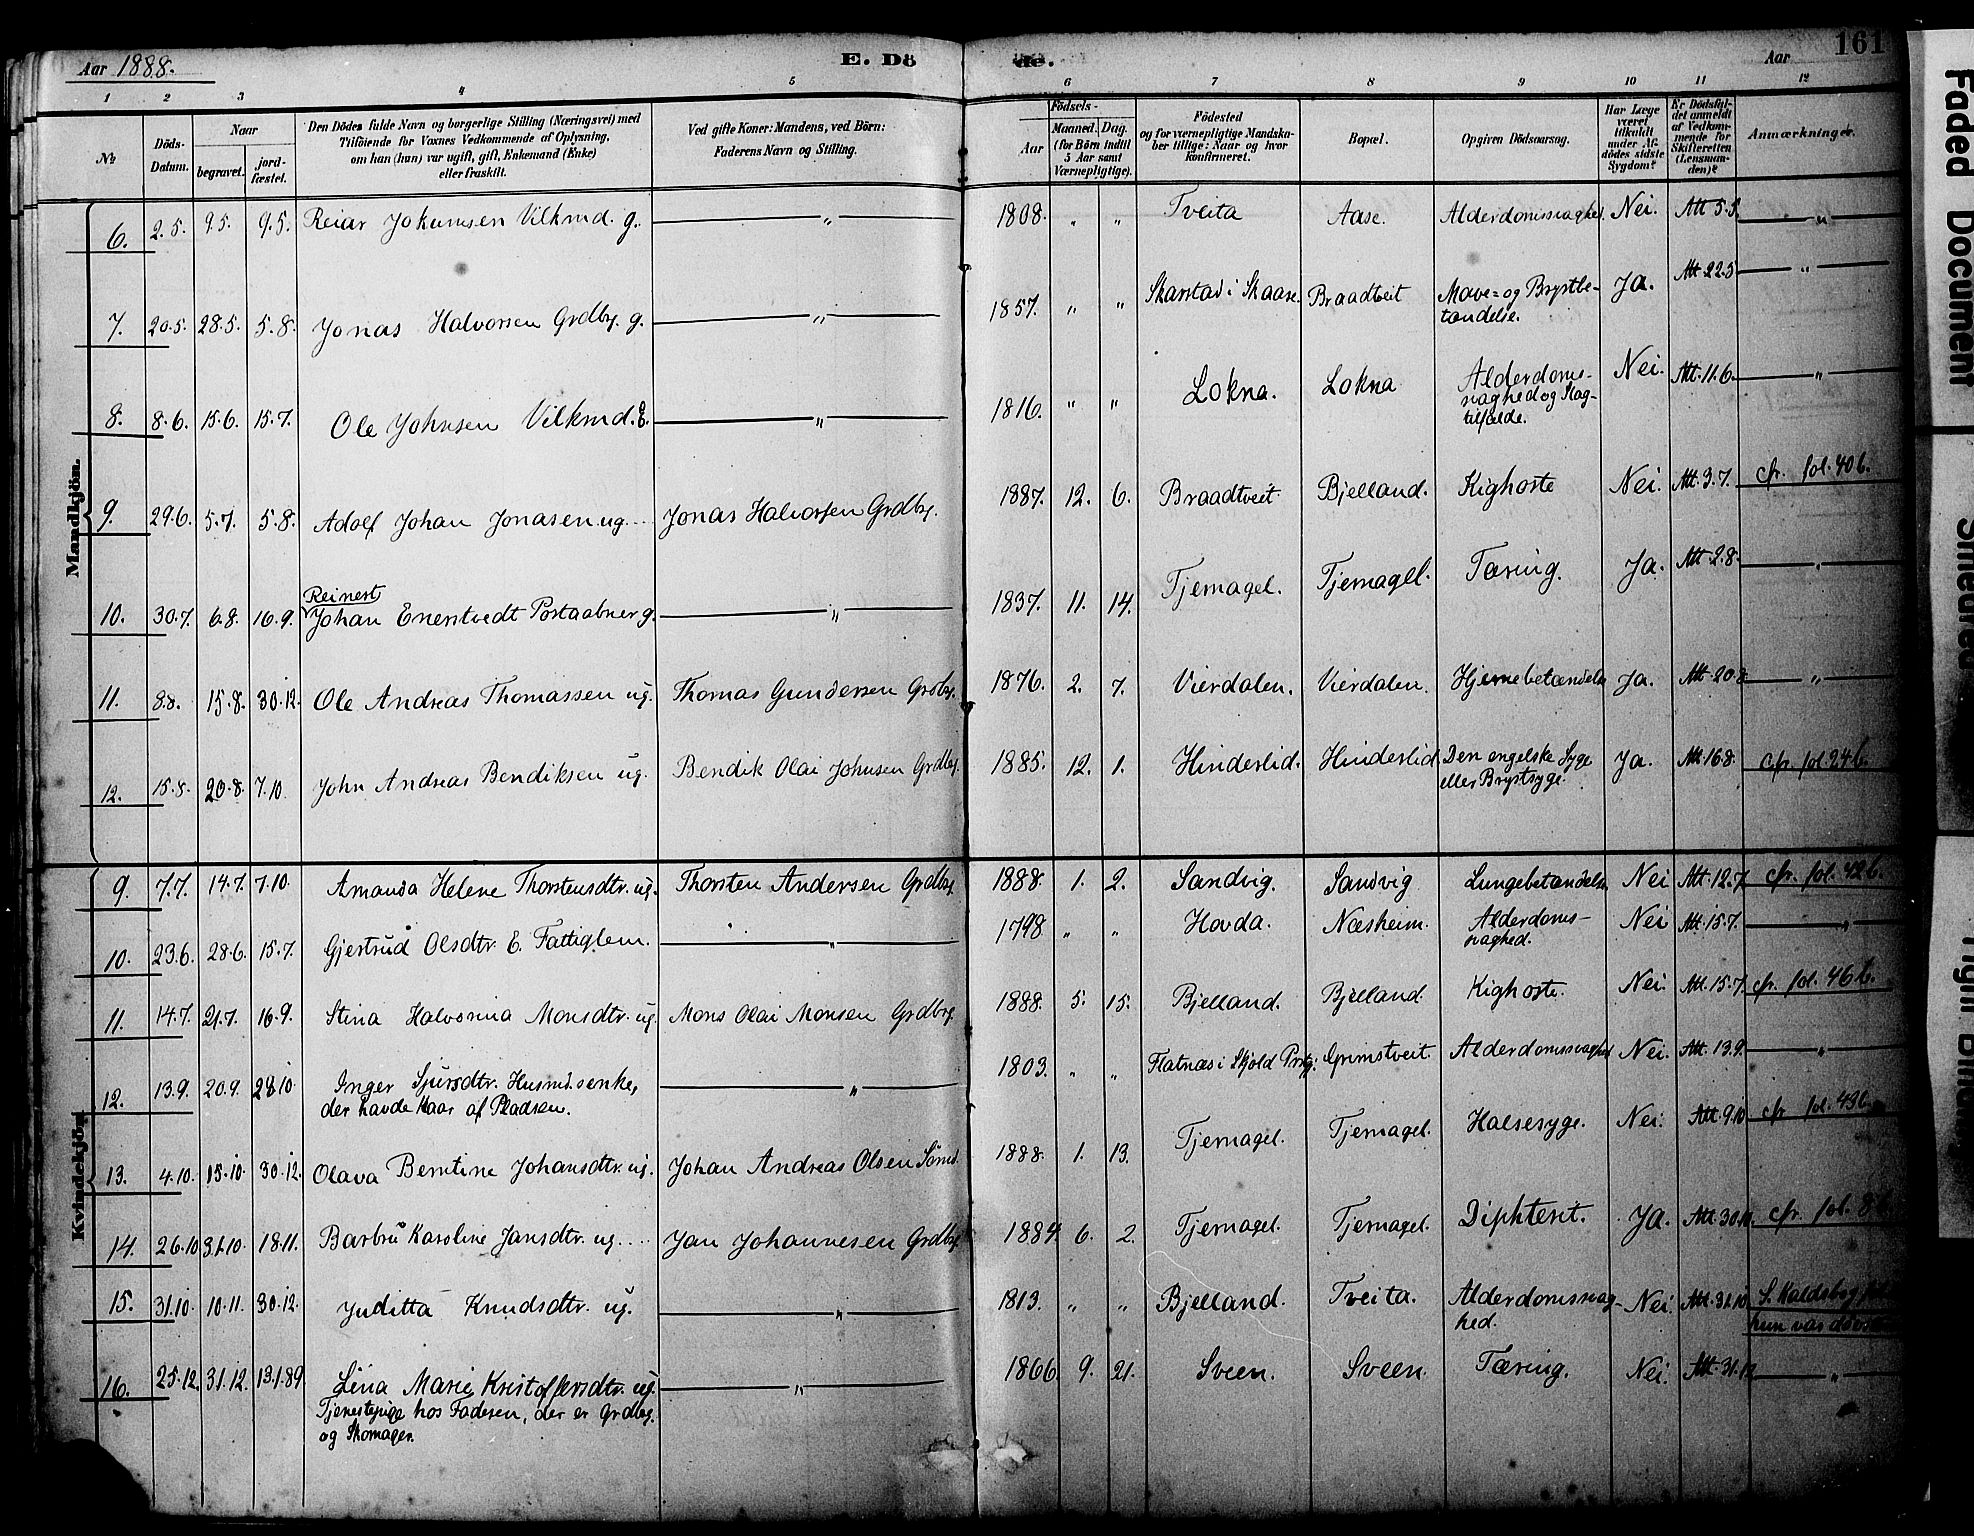 Aar 1888.
E. Dö de.
Aar
161
1 2 3 4 5 6 7 8 9 10 11 12
№
Döds-Datum.
Naar
begravet.
jord-fæstet.
Den Dödes fulde Navn og borgerlige Stilling (Næringsvei) med
Tilföiende for Voxnes Vedkommende af Oplysning,
om han (hun) var ugift, gift, Enkemand (Enke)
eller fraskilt.
Ved gifte Koner: Mandens, ved Börn:
Faderens Navn og Stilling.
Födsels-
Aar
Maaned. Dag.
(for Börn indtil
5 Aar samt
Værnepligtige).
Födested
og for værnepligtige Mandska-
ber tillige: Naar og hvor
konfirmeret.
Bopæl.
Opgiven Dödsaarsag.
Har Læge
været
tilkaldt
under Af-
dödes sidste
Sygdom?
Er Dödsfal-
det anmeldt
af Vedkom-
mende for
Skifteretten
(Lensman-
den)?
Anmærkninger.
Mandkjön.
6. 2.5. 9.5. 9.5. Reiar Jokumsen Vilkmd. g. " 1808. " " Tveita Aase. Alderdomssvaghed. Nei. Att 5.5. "
7. 20.5. 28.5. 5.8. Jonas Halvorsen Grdbr. g. " 1857. " " Skarstad i Skaare. Braadtveit Mave- og Brystbe-
tændelse. Ja. Att 22.5 "
8. 8.6. 15.6. 15.7. Ole Johnsen Vilkmd. E. " 1816. " " Lokna. Lokna Alderdoms-
svaghed og Slag-
tilfælde. Nei. Att. 11.6. "
9. 29.6. 5.7. 5.8. Adolf Johan Jonasen ug. Jonas Halvorsen Grdbr. 1887. 12. 6. Braadtveit Bjelland. Kighoste Nei. Att 3.7. cfr. fol. 40 b.
Reinert
10. 30.7. 6.8. 16.9. Johan Enerstvedt Postaabner g. " 1837. 11. 14. Tjernagel. Tjernagel. Tæring. Ja. Att 2.8. "
11. 8.8. 15.8. 30.12. Ole Andreas Thomassen ug. Thomas Gundersen Grdbr. 1876. 2. 7. Vierdalen. Vierdalen. Hjernebetændelse Ja. Att 20.8 "
12. 15.8. 20.8. 7.10. John Andreas Bendiksen ug. Bendik Olai Johnsen Grdbr. 1885. 12. 1. Hinderlid. Hinderlid Den engelske Syge
eller Brystsyge. Ja. Att 16.8. cfr. fol 24 b.
Kvindekjön.
9. 7.7. 14.7. 7.10. Amanda Helene Thorstensdtr. ug. Thorsten Andersen Grdbr. 1888. 1. 2. Sandvig. Sandvig Lungebetændelse Nei Att. 12.7 cfr. fol. 42 b.
10. 23.6. 28.6. 15.7. Gjertrud Olsdtr. E. Fattiglem. " 1798 " " Hovda. Næsheim. Alderdoms-
svaghed. Nei Att. 15.7. "
11. 14.7. 21.7. 16.9. Stina Halvorina Monsdtr. ug. Mons Olai Monsen Grdbr. 1888. 5. 15. Bjelland. Bjelland. Kighoste. Nei. Att. 15.7. cfr. fol. 46 b.
12. 13.9. 20.9. 28.10 Inger Sjursdtr. Husmdsenke,
der havde Kaar af Pladsen. " 1803. " " Flatnæs i Skjold Prstg: Grimstveit. Alderdomssvaghed Nei. Att. 13.9. "
13. 4.10. 15.10 30.12. Olava Berntine Johansdtr. ug. Johan Andreas Olsen Sömd. 1888. 1. 13. Tjernagel. Tjernagel. Halsesyge. Nei. Att 9.10 cfr. fol. 43 b.
14. 26.10 31.10. 18.11. Barbru Karoline Jansdtr. ug. Jan Johannesen Grdbr. 1884. 6. 2. Tjernagel. Tjernagel. Diphterit. Ja. Att 30.10. cfr. fol. 8 b.
15. 31.10. 10.11. 30.12. Juditta Knudsdtr. ug. " 1813. " " Bjelland. Tveita. Alderdomssvag-
hed. Nei. Att. 31.10
hun var
16. 25.12. 31.12. 13.1.89 Lina Marie Kristoffersdtr. ug.
Tjenestepige hos Faderen, der er Grdbr.
og Skomager. " 1866 9. 21. Sveen. Sveen. Tæring. Nei. Att 31.12 "
Faded Document
Smeared
Tight Binding